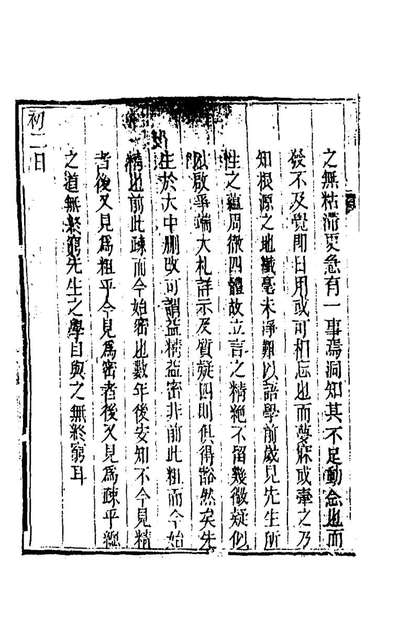 之無粘滯更急有一事焉洞知其不足動念也而
發不及覺即日用或可相忘也而夢寐或牽之乃
知根源之地纖毫未淨難以語學前歲見先生所
性之蘊周徹四體故立言之精絶不留幾微疑似
以啟爭端大札詳示及質疑四則俱得豁然矣朱
生於大中刪改可謂益精益密非前此粗而今始
精也前此疎而今始密也數年後安知不今見精
者後又見爲粗乎今見爲密者後又見爲疎乎總
之道無終窮先生之學自與之無終窮耳
初二日